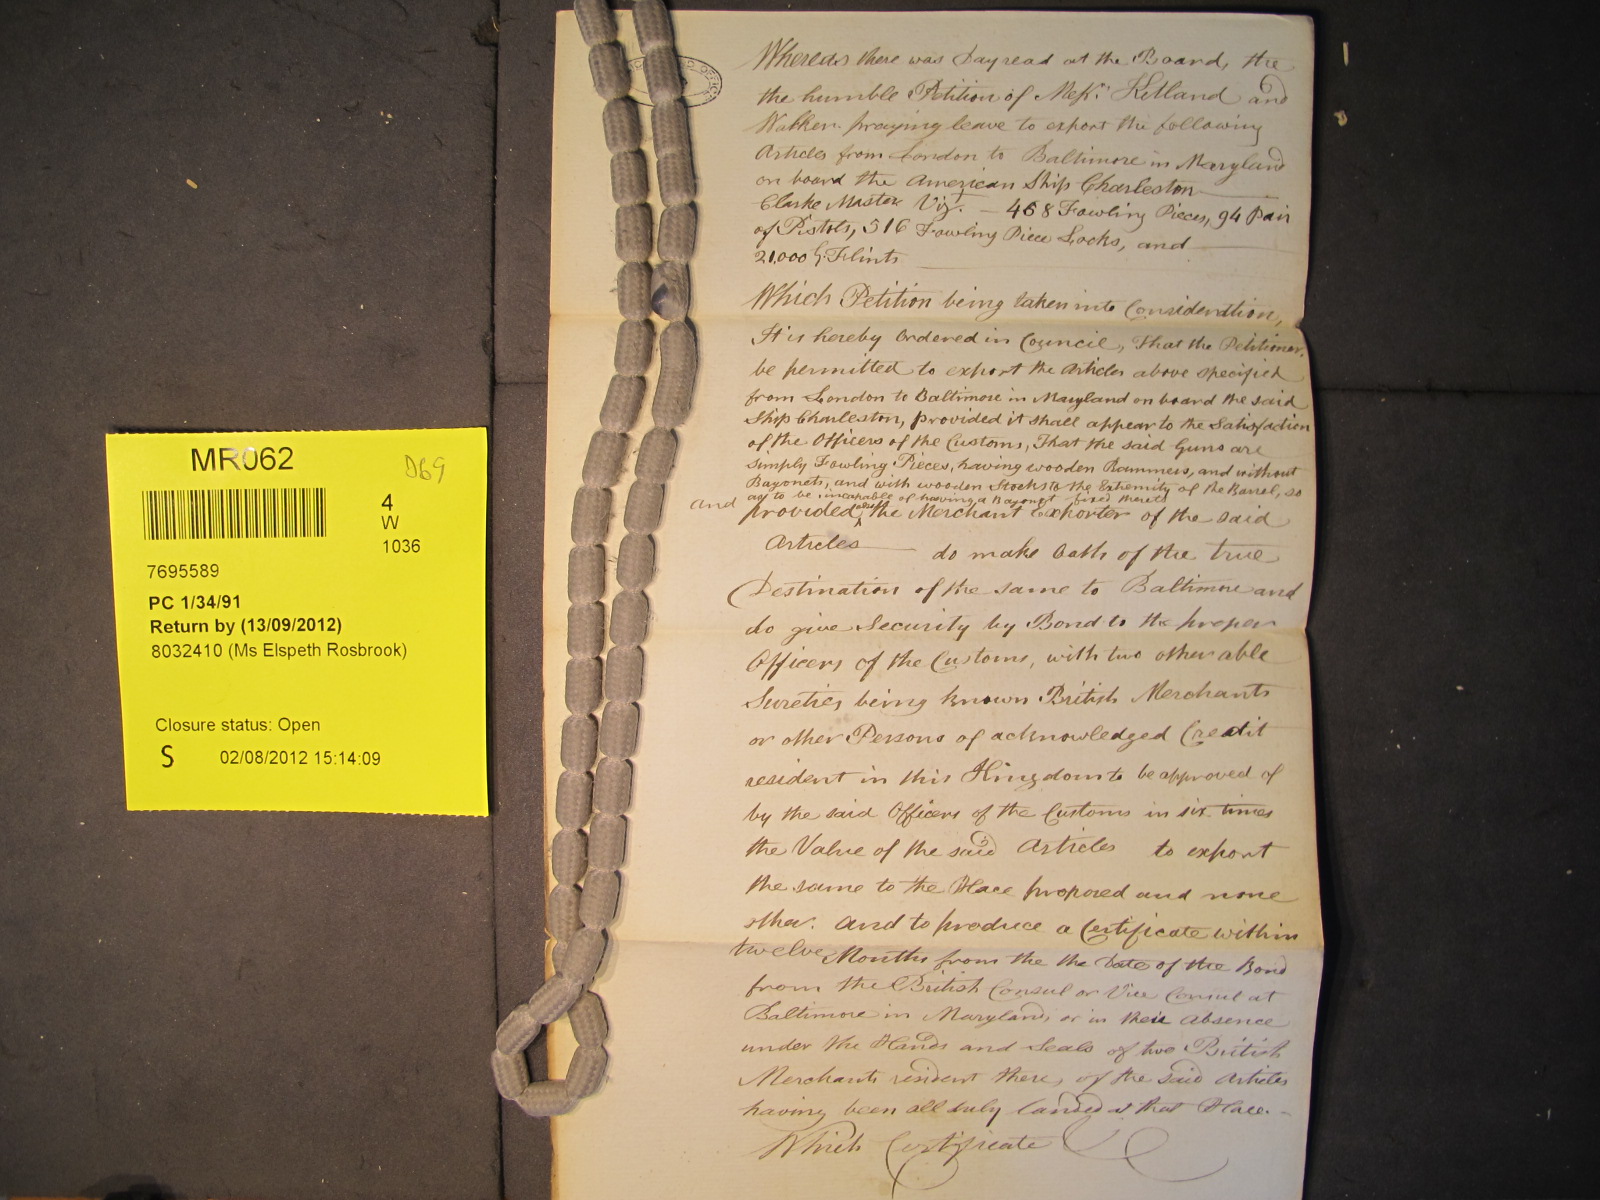 MR062
D69
4
W
1036
7695589
PC 1/34/91
Return by (13/09/2012)
8032410 (Ms Elspeth Rosbrook)
Closure status: Open
S 02/08/2012 15:14:09
Whereas there was Day read at the Board, the
the humble Petition of Messrs. Ketland and
Walker praying leave to export the following
Articles from London to Baltimore in Maryland
on board the American Ship Charleston
Clarke Master Vizt. — 468 Fowling Pieces, 94 pair
of Pistols, 516 Fowling Piece Locks, and
21,000 Flints
Which Petition being taken into Consideration,
It is hereby Ordered in Council, That the Petitioner
be permitted to export the Articles above specified
from London to Baltimore in Maryland on board the said
Ship Charleston, provided it shall appear to the Satisfaction
of the Officers of the Customs, That the said Guns are
simply Fowling Pieces, having wooden Rammers, and without
Bayonets, and with wooden Stocks to the Extremity of the Barrel, so
as to be incapable of having a Bayonet fixed thereto
and provided also the Merchant Exporter of the said
Articles do make Oath of the true
Destination of the same to Baltimore and
do give Security by Bond to the proper
Officers of the Customs, with two other able
Sureties being known British Merchants
or other Persons of acknowledged Credit
resident in this Kingdom to be approved of
by the said Officers of the Customs in six times
the Value of the said Articles to export
the same to the Place proposed and none
other. And to produce a Certificate within
twelve Months from the the Date of the Bond
from the British Consul or Vice Consul at
Baltimore in Maryland, or in their absence
under the Hands and Seals of two British
Merchants resident there, of the said Articles
having been all duly landed at that Place. -
Which Certificate